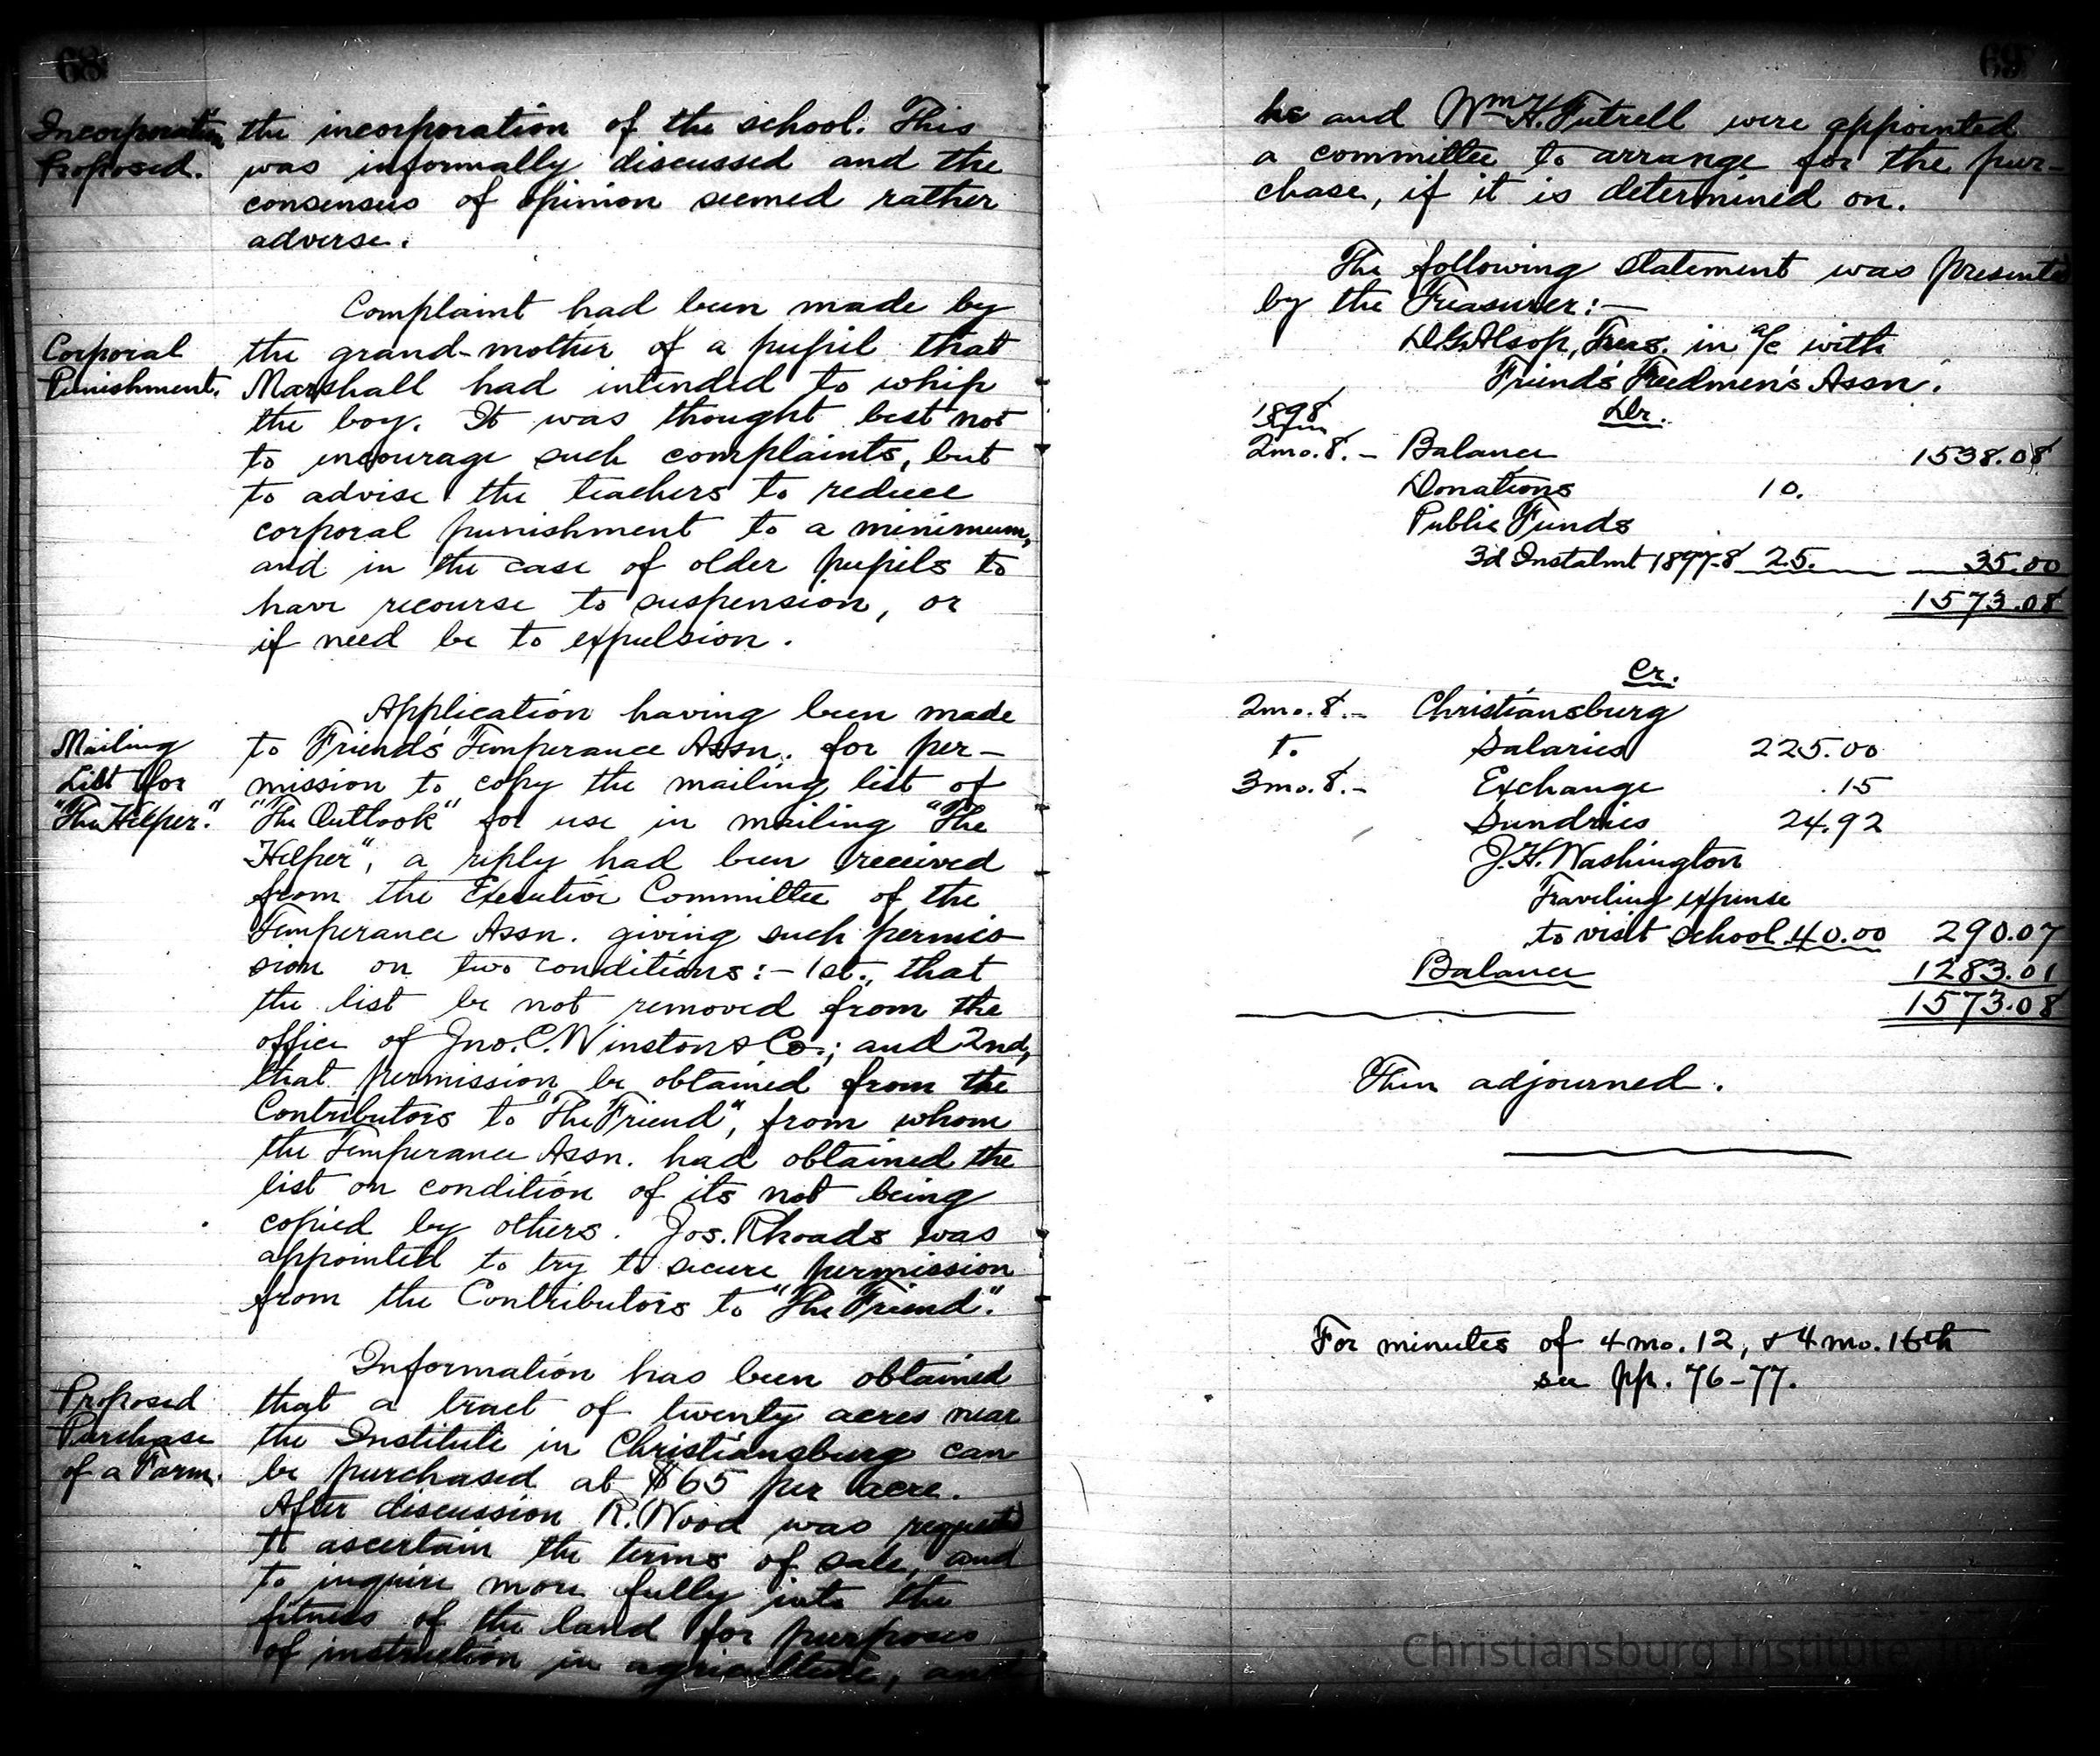 68
Incorporation
Proposed.
the incorporation of the school. This
was informally discussed and the
consensus of opinion seemed rather
adverse.
Complaint had been made by
Corporal
Punishment.
the grand-mother of a pupil that
Marshall had intended to whip
the boy. It was thought best not
to encourage such complaints, but
to advise the teachers to reduce
corporal punishment to a minimum,
and in the case of older pupils to
have recourse to suspension, or
if need be to expulsion.
Application having been made
Mailing
List for
"The Helper".
to Friends' Temperance Assn. for per-
mission to copy the mailing list of
"The Outlook" for use in mailing "The
Helper", a reply had been received
from the Executive Committee of the
Temperance Assn. giving such permis
sion on two conditions:- 1st., that
the list be not removed from the
office of Jno. C. Winston & Co.; and 2nd,
that permission be obtained from the
Contributors to "The Friend", from whom
the Temperance Assn. had obtained the
list on condition of its not being
copied by others. Jos. Rhoads was
appointed to try to secure permission
from the Contributors to "The Friend".
Information has been obtained
Proposed
Purchase
of a Farm.
that a tract of twenty acres near
the Institute in Christiansburg can
be purchased at $65 per acre.
After discussion R. Wood was requested
to ascertain the terms of sale, and
to inquire more fully into the
fitness of the land for purposes
of instruction in agriculture, and
69
he and Wm H. Futrell were appointed
a committee to arrange for the pur-
chase, if it is determined on.
The following statement was presented
by the Treasurer:-
D.G. Alsop, Treas. in a/c with
Friends' Freedmen's Assn.
1898 Dr.
2mo.8.- Balance 1538.08
Donations 10.
Public Funds
3d Instalmt 1897-8 25. 35.00
1573.08
Cr.
2mo.8.- Christiansburg
to Salaries 225.00
3mo.8.- Exchange .15
Sundries 24.92
J.H. Washington
Traveling expense
to visit school 40.00 290.07
Balance 1283.01
1573.08
Then adjourned.
For minutes of 4mo.12, & 4mo.16th
see pp. 76-77.
Christiansburg Institute, Inc